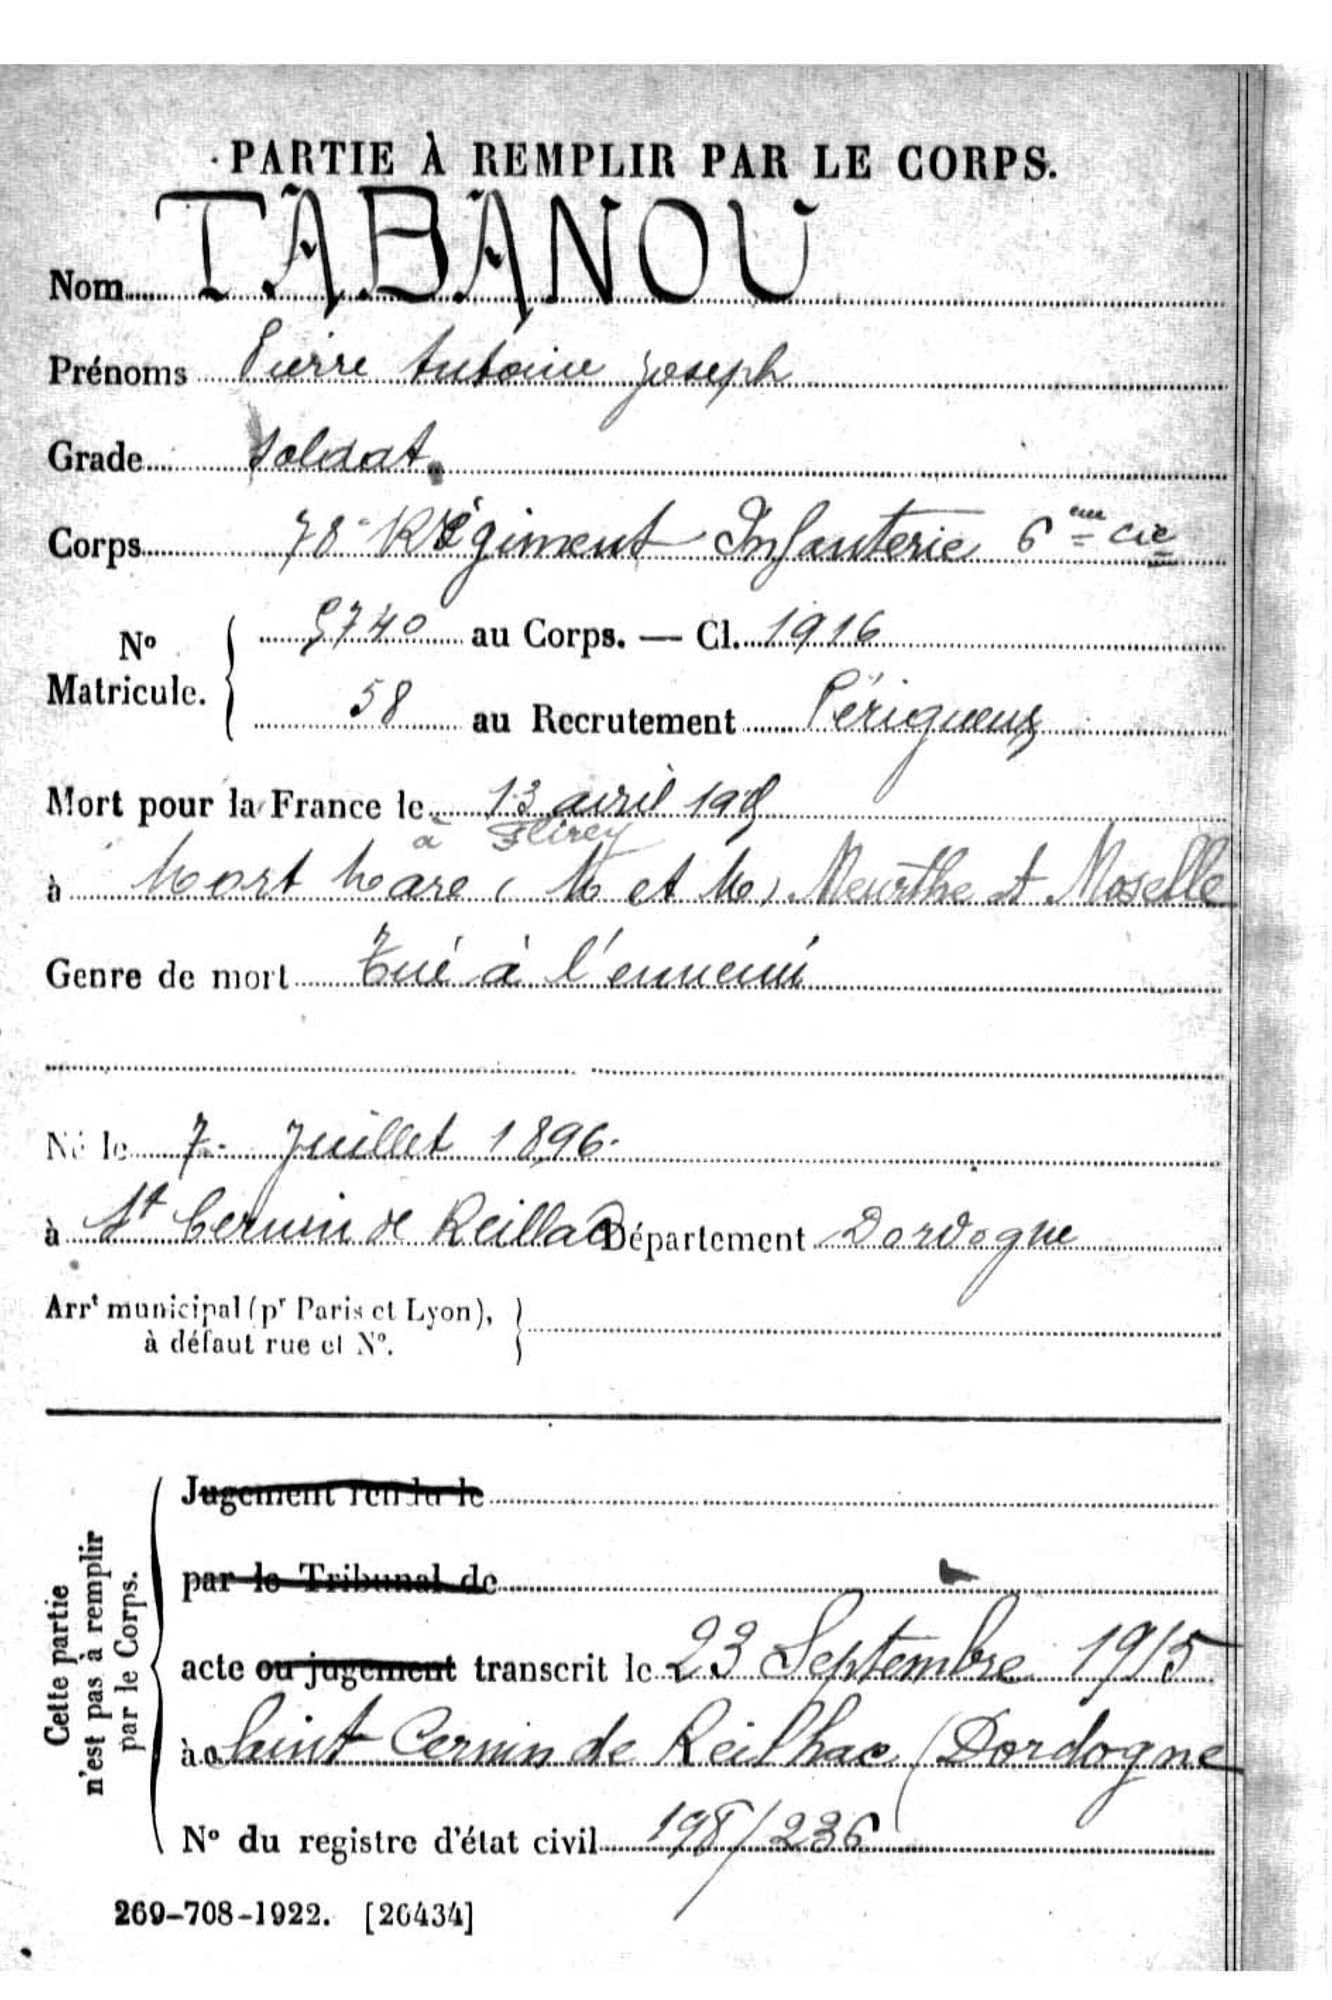 PARTIE À REMPLIR PAR LE CORPS.
Nom TABANOU
Prénoms Pierre Antoine Joseph
Grade Soldat
Corps 78e Régiment Infanterie 6ème Cie
No Matricule. 5740 au Corps. — Cl. 1916
58 au Recrutement Périgueux
Mort pour la France le 13 avril 1915
à Flirey
à Mort Mare (M et M) Meurthe et Moselle
Genre de mort Tué à l'ennemi
Né le 7 Juillet 1896
à St Cernin de Reillac Département Dordogne
Arrt municipal (pr Paris et Lyon),
à défaut rue et No.
Cette partie
n'est pas à remplir
par le Corps.
Jugement rendu le
par le Tribunal de
acte ou jugement transcrit le 23 Septembre 1915
à Saint Cernin de Reilhac (Dordogne
No du registre d'état civil 198/236
269-708-1922. [26434]